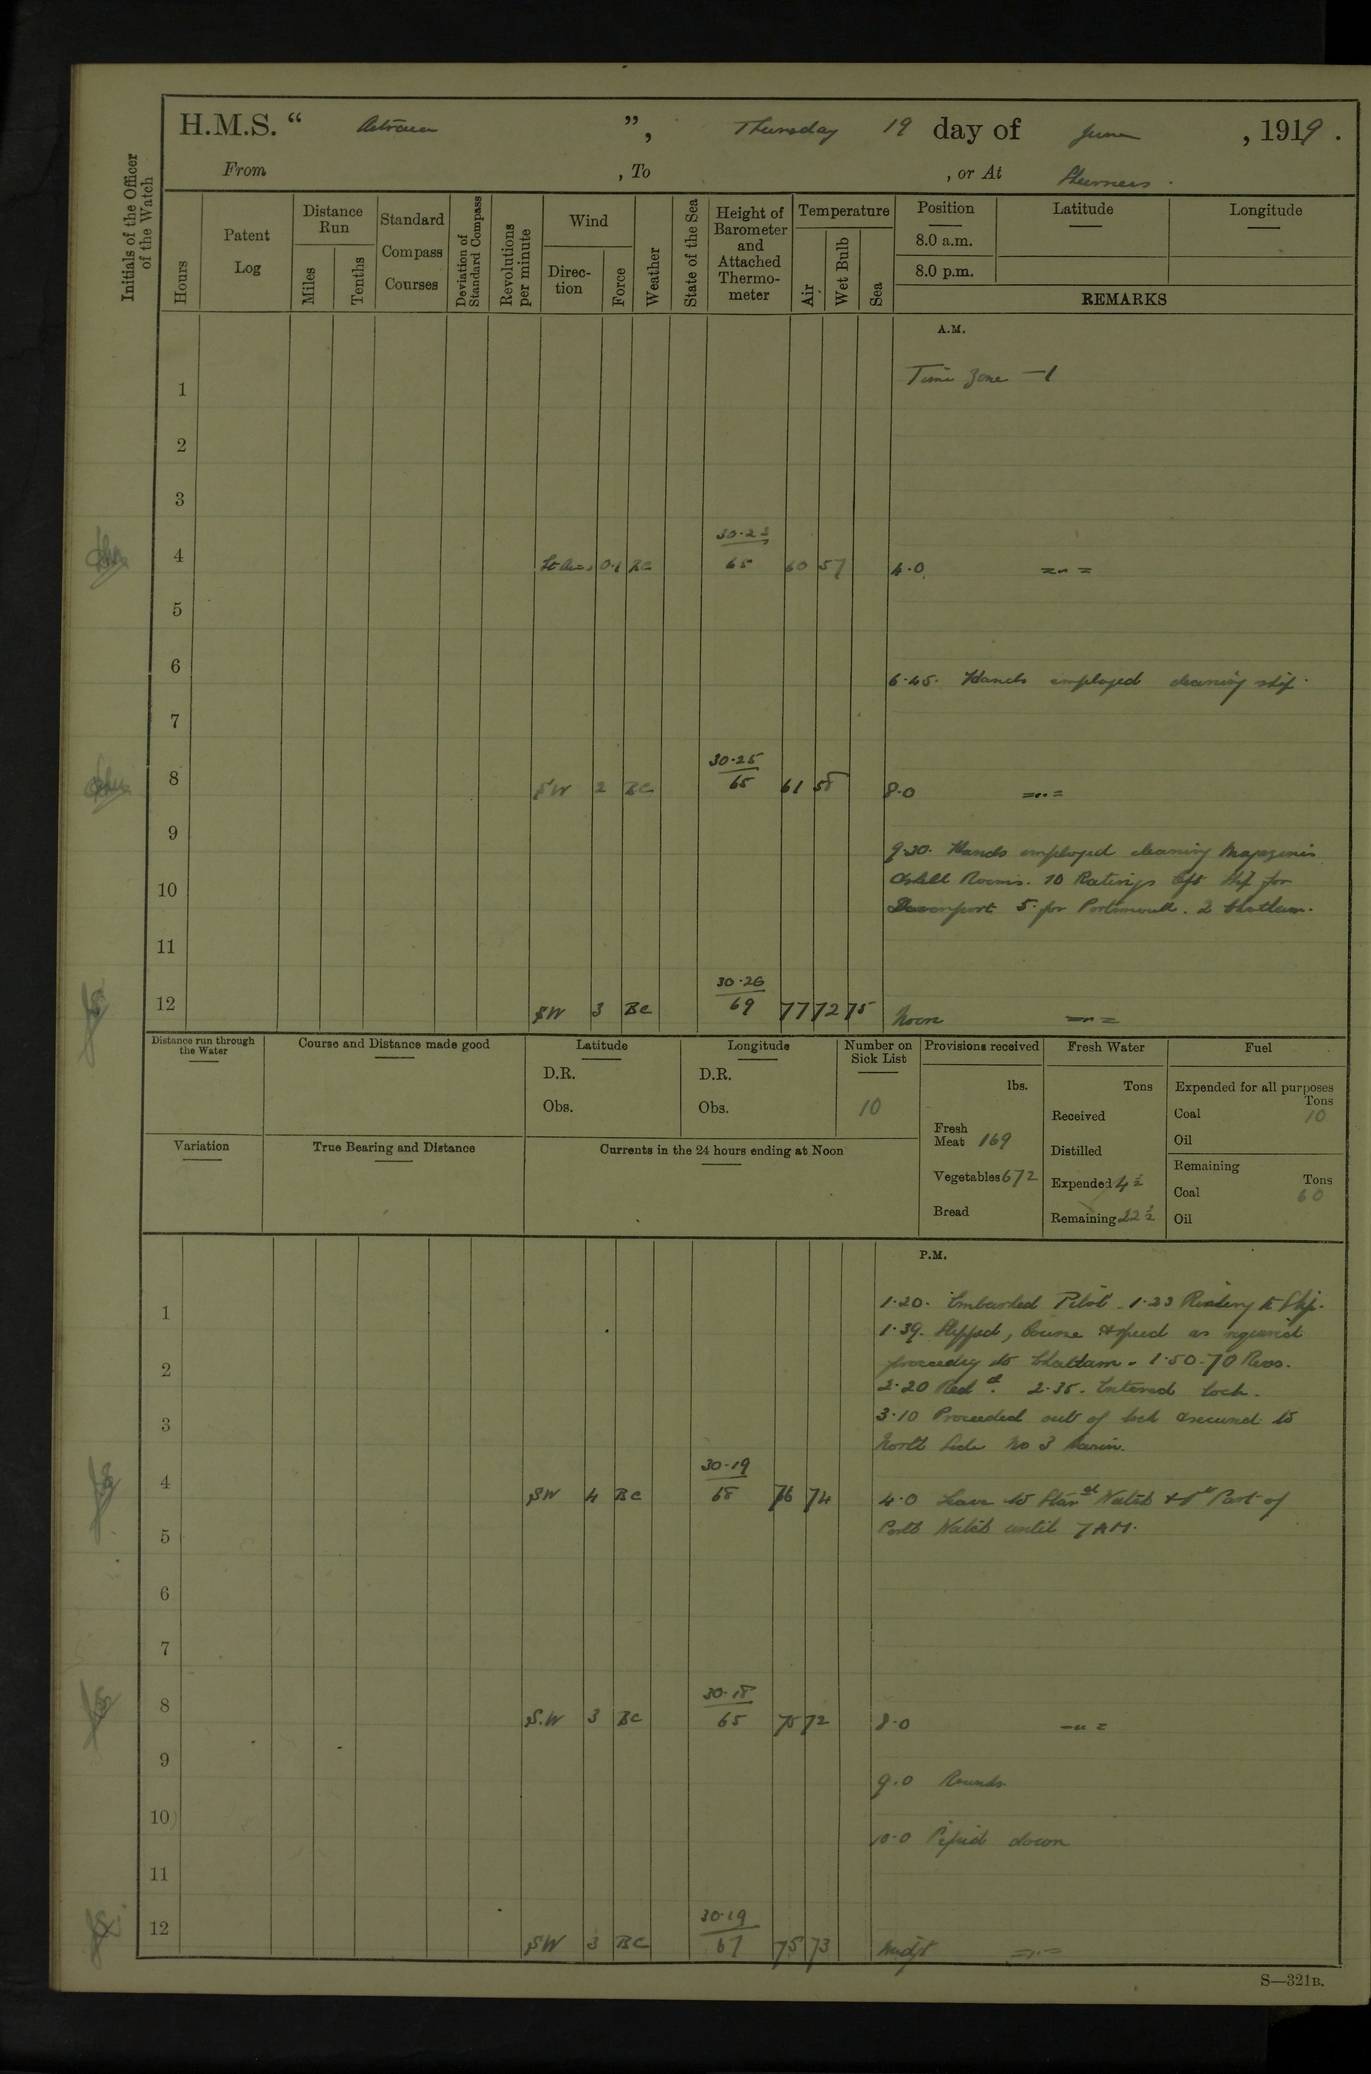 H.M.S. “ Astraea ”, Thursday 19 day of June, 1919.
From , To , or At Sheerness.
Initials of the Officer of the Watch
Hours
Patent Log
Distance Run
Miles
Tenths
Standard Compass Courses
Deviation of Standard Compass
Revolutions per minute
Wind
Direction
Force
Weather
State of the Sea
Height of Barometer and Attached Thermometer
Temperature
Air
Wet Bulb
Sea
Position
Latitude
Longitude
8.0 a.m.
8.0 p.m.
REMARKS
A.M.
1 Time Zone -1
2
3
4 Lt airs 0.1 BC 30.23 65 60 57 4.0
5
6
6.45. Hands employed cleaning ship.
7
8 SW 2 BC 30.25 65 61 58 8.0
9
9.30. Hands employed cleaning Magazines
10 & Shell Rooms. 10 Ratings left ship for
Davenport 5 for Portsmouth. 2 Chatham.
11
12 SW 3 BC 30.26 69 77 72 75 Noon
Distance run through the Water
Course and Distance made good
Latitude
D.R.
Obs.
Longitude
D.R.
Obs.
Number on Sick List
10
Provisions received
lbs.
Fresh Meat 169
Vegetables 672
Bread
Fresh Water
Tons
Received
Distilled
Expended 4½
Remaining 22½
Fuel
Expended for all purposes
Tons
Coal 10
Oil
Remaining
Tons
Coal 60
Oil
Variation
True Bearing and Distance
Currents in the 24 hours ending at Noon
P.M.
1 1.20. Embarked Pilot. 1.23 Rividery to Ship.
1.39. Slipped, Course & speed as required
2 proceeding to Chatham. 1.50. 70 Revs.
2.20 Redd. 2.35. Entered lock.
3 3.10 Proceeded out of lock & secured to
North Side No 3 Basin.
4 SW 4 BC 30.19 68 76 74 4.0 Leave to Stard Watch & 1st Part of
5 Port Watch until 7 AM.
6
7
8 S.W 3 BC 30.18 65 75 72 8.0
9
9.0 Rounds
10
10.0 Piped down
11
12 SW 3 BC 30.19 67 75 73 Midt
S—321B.